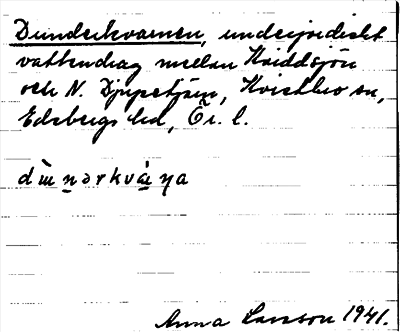 Dunderkvarnen, underjordiskt
vattendrag mellan Hvidsjön
och N. Djupetjärn, Kvistbro sn,
Edsbergs hd, Ör. l.
Anna Larsson 1941.